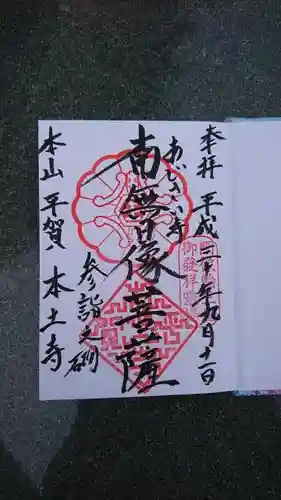 奉拝 平成三十年九月十一日
あじさい寺
南無日像菩薩
参詣之砌
本山 平賀 本土寺